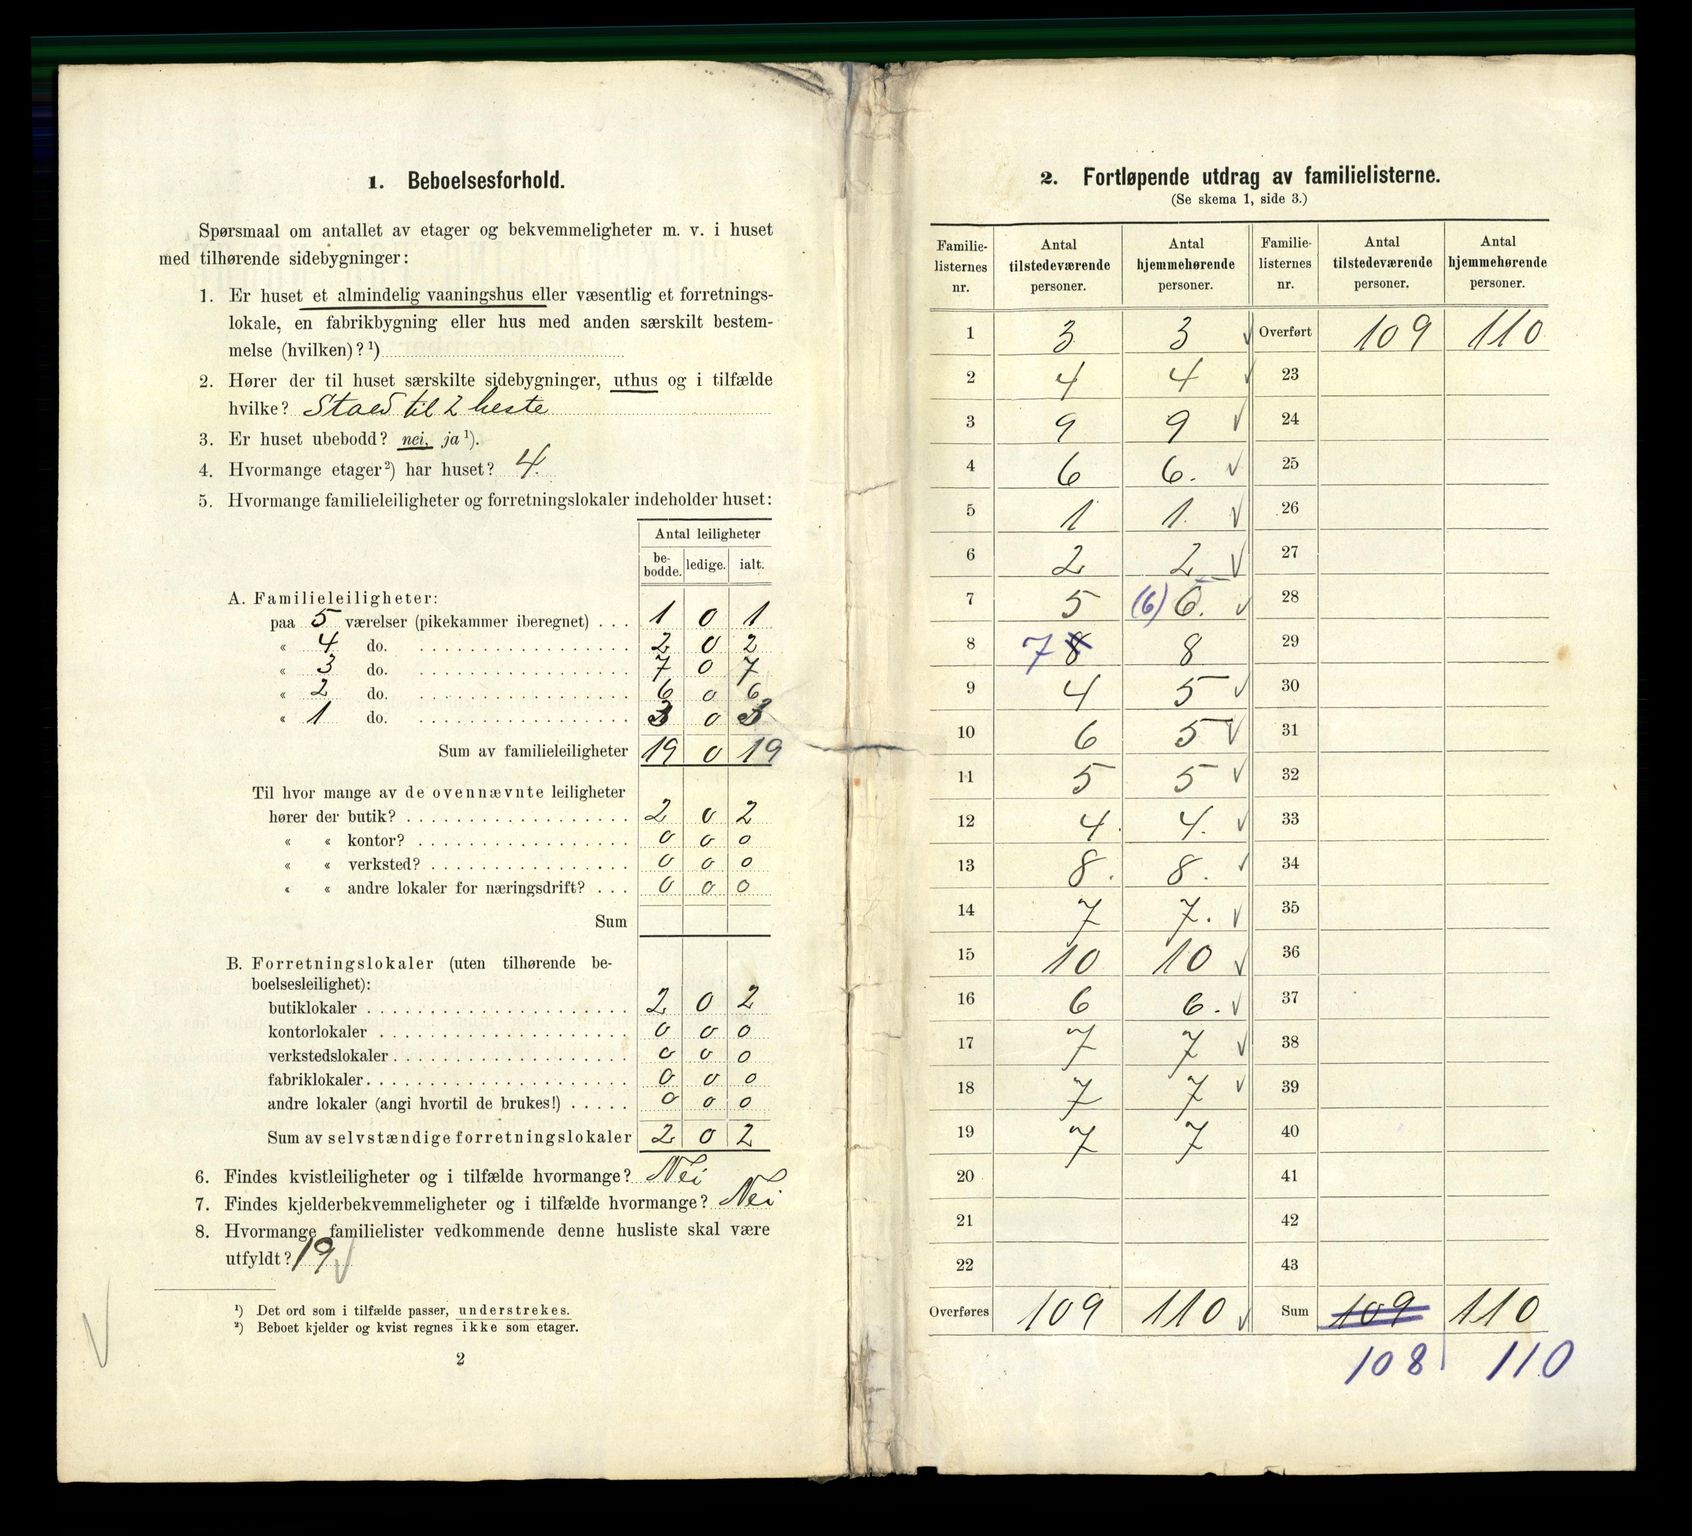 1. Beboelsesforhold.
Spørsmaal om antallet av etager og bekvemmeligheter m. v. i huset
med tilhørende sidebygninger:
1. Er huset et almindelig vaaningshus eller væsentlig et forretnings-
lokale, en fabrikbygning eller hus med anden særskilt bestem-
melse (hvilken)? ¹)
2. Hører der til huset særskilte sidebygninger, uthus og i tilfælde
hvilke? Stald til 2 heste
3. Er huset ubebodd? nei, ja ¹).
4. Hvormange etager ²) har huset? 4.
5. Hvormange familieleiligheter og forretningslokaler indeholder huset:
Antal leiligheter
be-bodde. ledige. ialt.
A. Familieleiligheter:
paa 5 værelser (pikekammer iberegnet) . . . 1 0 1
« 4 do. 2 0 2
« 3 do. 7 0 7
« 2 do. 6 0 6
« 1 do. 3 0 3
Sum av familieleiligheter 19 0 19
Til hvor mange av de ovennævnte leiligheter
hører der butik? 2 0 2
« « kontor? 0 0 0
« « verksted? 0 0 0
« « andre lokaler for næringsdrift? . . . 0 0 0
Sum
B. Forretningslokaler (uten tilhørende be-
boelsesleilighet):
butiklokaler 2 0 2
kontorlokaler 0 0 0
verkstedslokaler 0 0 0
fabriklokaler 0 0 0
andre lokaler (angi hvortil de brukes!) 0 0 0
Sum av selvstændige forretningslokaler 2 0 2
6. Findes kvistleiligheter og i tilfælde hvormange? Nei
7. Findes kjelderbekvemmeligheter og i tilfælde hvormange? Nei
8. Hvormange familielister vedkommende denne husliste skal være
utfyldt? 19 ✓
¹) Det ord som i tilfælde passer, understrekes.
²) Beboet kjelder og kvist regnes ikke som etager.
2
2. Fortløpende utdrag av familielisterne.
(Se skema 1, side 3.)
Familie-listernes nr. Antal tilstedeværende personer. Antal hjemmehørende personer. Familie-listernes nr. Antal tilstedeværende personer. Antal hjemmehørende personer.
1 3 3 ✓ Overført 109 110
2 4 4 ✓ 23
3 9 9 ✓ 24
4 6 6. ✓ 25
5 1 1. ✓ 26
6 2 2 ✓ 27
7 5 (6) 6. ✓ 28
8 7 8 8 29
9 4 5 ✓ 30
10 6 5 ✓ 31
11 5 5 ✓ 32
12 4. 4. ✓ 33
13 8. 8. ✓ 34
14 7 7. ✓ 35
15 10 10 ✓ 36
16 6 6. ✓ 37
17 7 7 ✓ 38
18 7 7 ✓ 39
19 7 7 40
20 41
21 42
22 43
Overføres 109 110 ✓ Sum 109 110
108 110